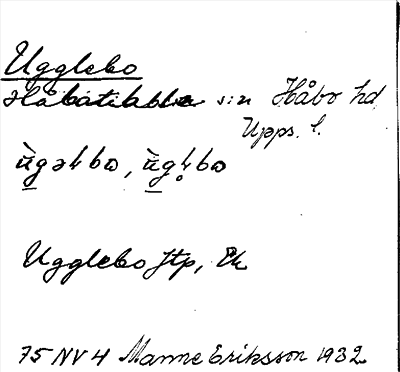 Ugglebo
Håbo-Tibble s:n Håbo hd
Upps. l.
Ugglebo ftp, Ek
75 NV 4 Manne Eriksson 1932